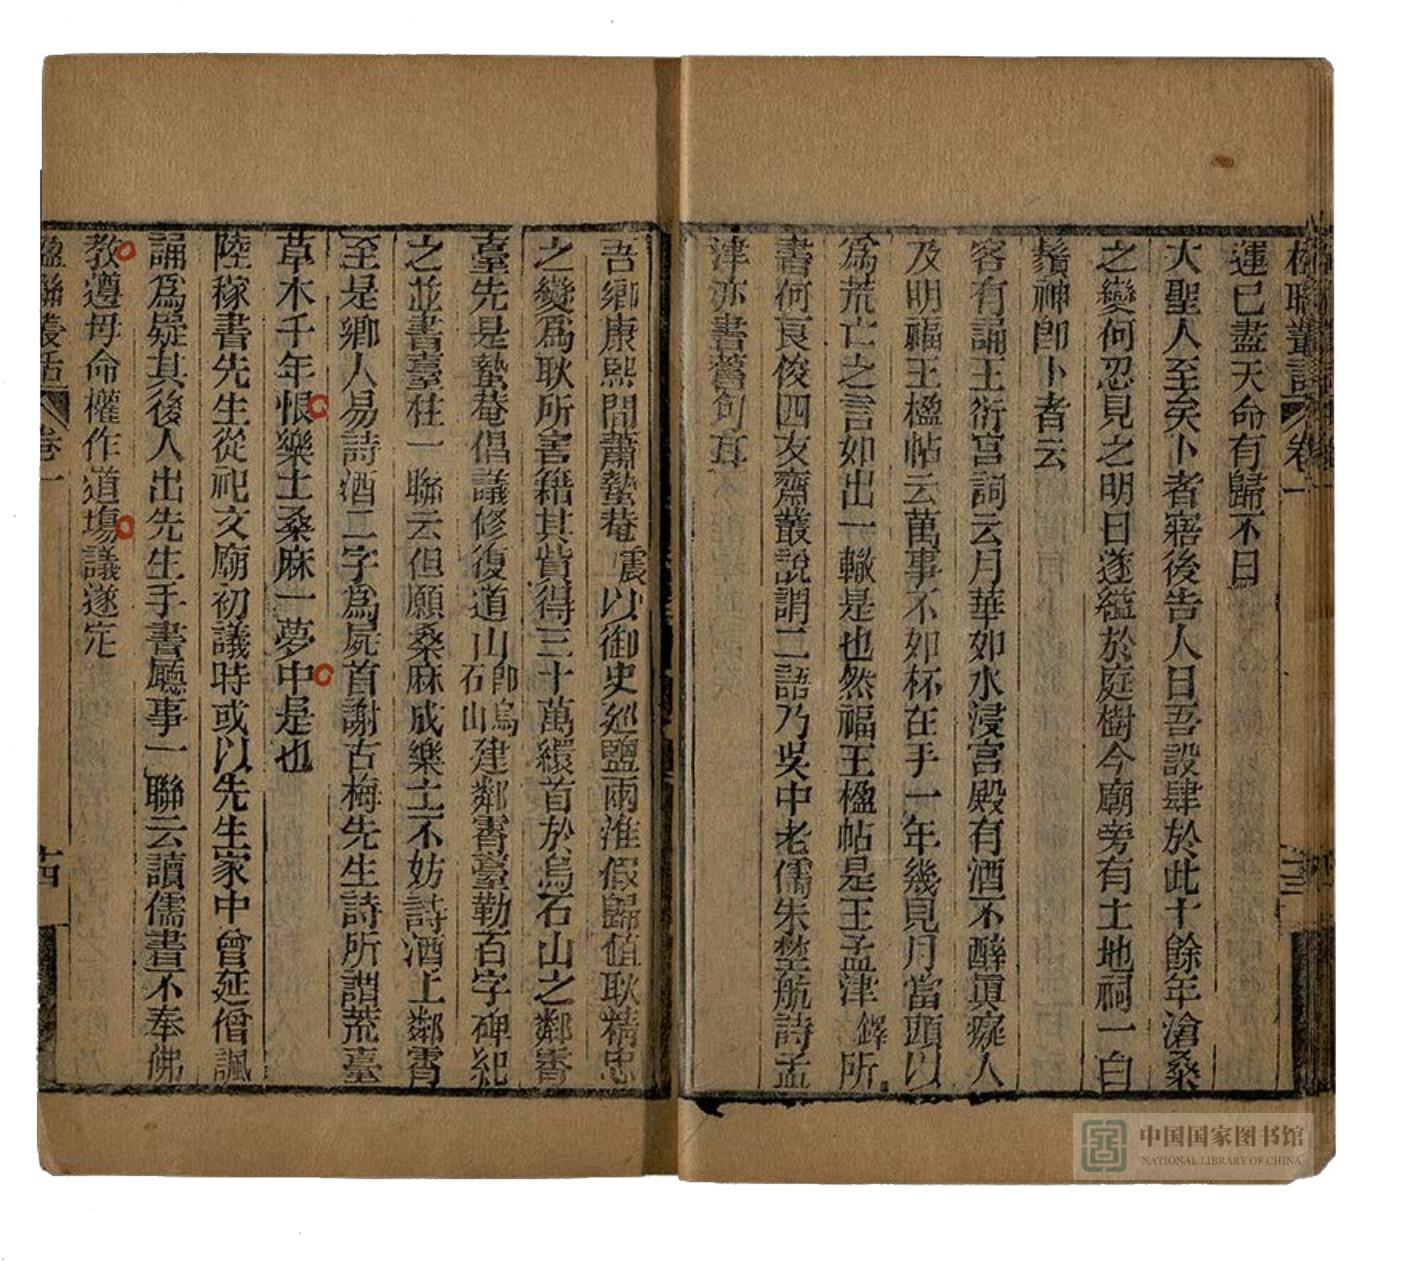 楹聯叢話 卷一
運已盡天命有歸不日
大聖人至矣卜者寤後告人曰吾設肆於此十餘年滄桑
之變何忍見之明日遂縊於庭樹今廟旁有土地祠一白
鬚神卽卜者云
客有誦王衍宮詞云月華如水浸宮殿有酒不醉真癡人
及明福王楹帖云萬事不如杯在手一年幾見月當頭以
爲荒亡之言如出一轍是也然福王楹帖是王孟津鐸所
書何良俊四友齋叢說謂二語乃吳中老儒朱埜航詩孟
津亦書舊句耳
吾鄉康熙間蕭蟄菴震以御史廵鹽兩淮假歸值耿精忠
之變爲耿所害籍其貲得三十萬繯首於烏石山之鄰霄
臺先是蟄菴倡議修復道山卽烏石山建鄰霄臺勒百字碑紀
之並書臺柱一聯云但願桑麻成樂土不妨詩酒上鄰霄
至是鄉人易詩酒二字爲屍首謝古梅先生詩所謂荒臺
草木千年恨樂土桑麻一夢中是也
陸稼書先生從祀文廟初議時或以先生家中曾延僧諷
誦爲疑其後人出先生手書廳事一聯云讀儒書不奉佛
教遵母命權作道場議遂定
楹聯叢話 卷一 十四
中国国家图书馆
NATIONAL LIBRARY OF CHINA